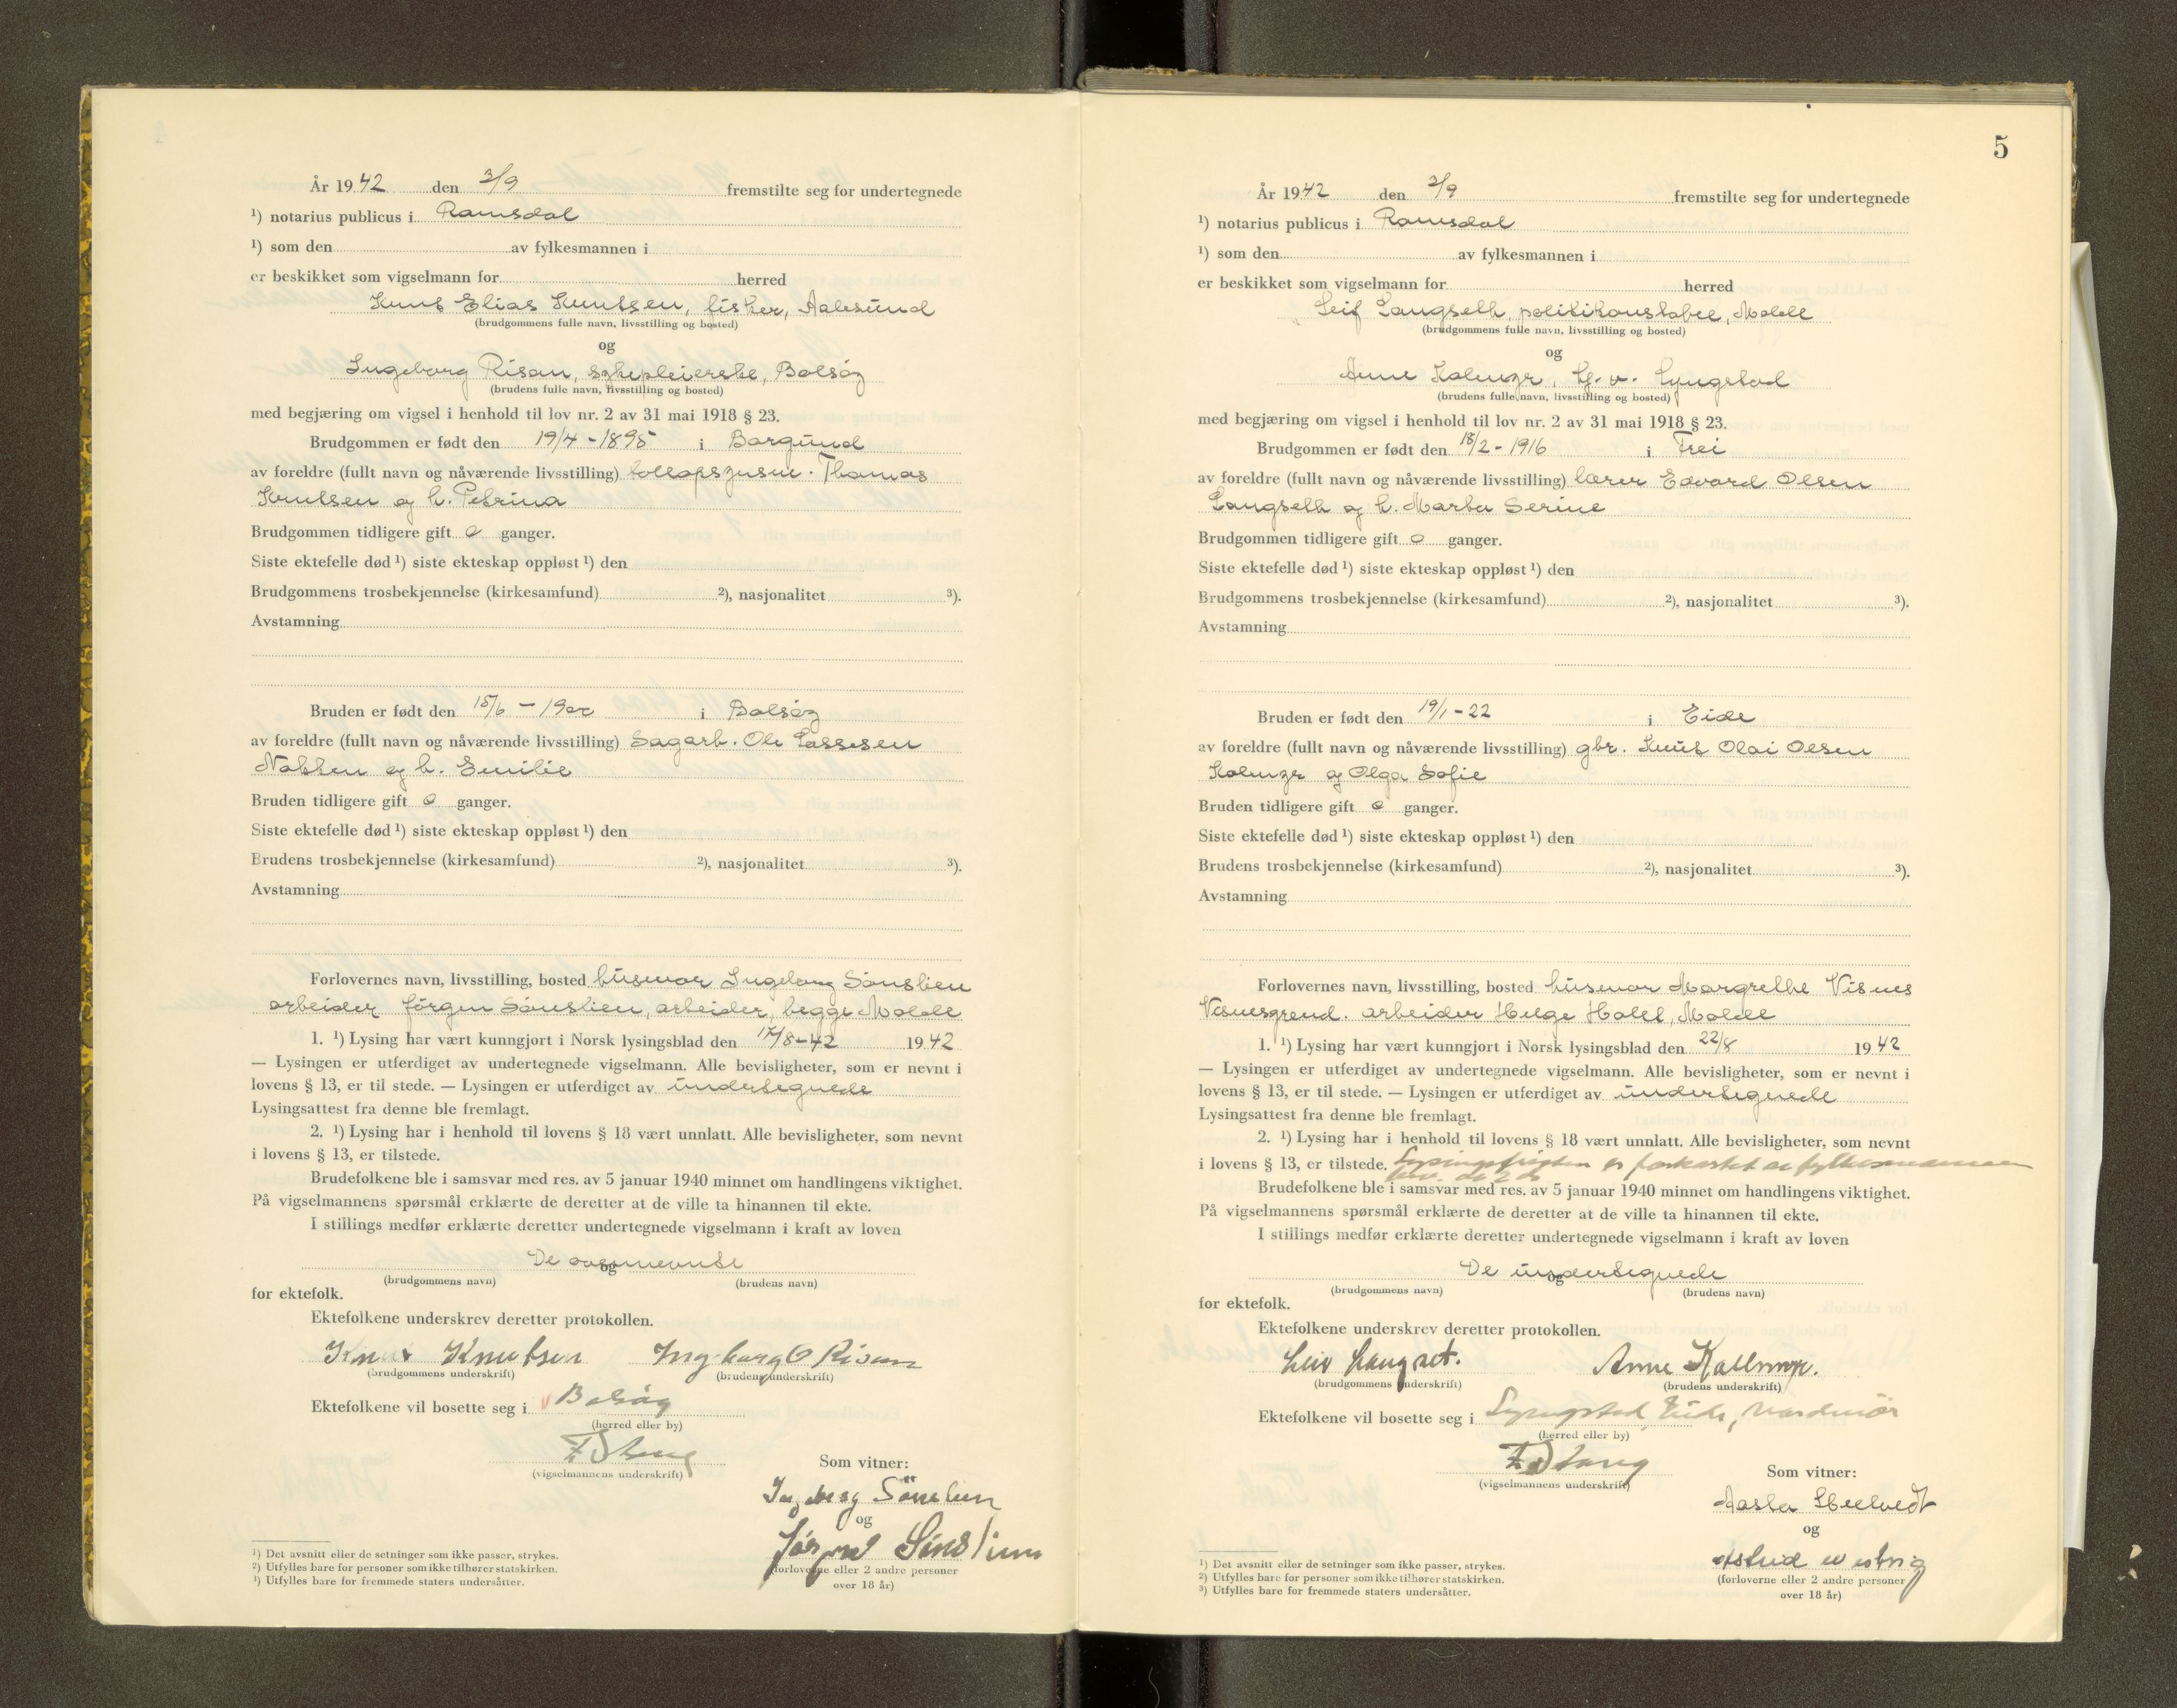 År 1942 den 3/9 fremstilte seg for undertegnede
¹) notarius publicus i Romsdal
¹) som den av fylkesmannen i
er beskikket som vigselmann for herred
Knut Elias Knutsen, fisker, Aalesund
(brudgommens fulle navn, livsstilling og bosted)
og
Ingeborg Risan, sykepleierske, Bolsøy
(brudens fulle navn, livsstilling og bosted)
med begjæring om vigsel i henhold til lov nr. 2 av 31 mai 1918 § 23.
Brudgommen er født den 19/4-1895 i Borgund
av foreldre (fullt navn og nåværende livsstilling) tollopsynsm. Thomas
Knutsen og h. Petrina
Brudgommen tidligere gift 0 ganger.
Siste ektefelle død ¹) siste ekteskap oppløst ¹) den
Brudgommens trosbekjennelse (kirkesamfund) ²), nasjonalitet ³).
Avstamning
Bruden er født den 15/6 - 1900 i Bolsøy
av foreldre (fullt navn og nåværende livsstilling) Sagarb. Ole Lassesen
og h. Emilie
Bruden tidligere gift 0 ganger.
Siste ektefelle død ¹) siste ekteskap oppløst ¹) den
Brudens trosbekjennelse (kirkesamfund) ²), nasjonalitet ³).
Avstamning
Forlovernes navn, livsstilling, bosted husmor Ingeborg Sønslien
arbeider Jørgen Sønslien, arbeider, begge Molde
1. ¹) Lysing har vært kunngjort i Norsk lysingsblad den 17/8-42 1942
— Lysingen er utferdiget av undertegnede vigselmann. Alle bevisligheter, som er nevnt i
lovens § 13, er til stede. — Lysingen er utferdiget av undertegnede
Lysingsattest fra denne ble fremlagt.
2. ¹) Lysing har i henhold til lovens § 18 vært unnlatt. Alle bevisligheter, som nevnt
i lovens § 13, er tilstede.
Brudefolkene ble i samsvar med res. av 5 januar 1940 minnet om handlingens viktighet.
På vigselmannens spørsmål erklærte de deretter at de ville ta hinannen til ekte.
I stillings medfør erklærte deretter undertegnede vigselmann i kraft av loven
De ovennevnte
og
(brudgommens navn) (brudens navn)
for ektefolk.
Ektefolkene underskrev deretter protokollen.
Knut Knutsen Ingeborg O Risan
(brudgommens underskrift) (brudens underskrift)
Ektefolkene vil bosette seg i Bolsøy
(herred eller by)
(vigselmannens underskrift)
Som vitner:
Ingeborg Sönslien
og
Jörgen Sönslien
(forloverne eller 2 andre personer
over 18 år)
¹) Det avsnitt eller de setninger som ikke passer, strykes.
²) Utfylles bare for personer som ikke tilhører statskirken.
³) Utfylles bare for fremmede staters undersåtter.
5
År 1942 den 3/9 fremstilte seg for undertegnede
¹) notarius publicus i Romsdal
¹) som den av fylkesmannen i
er beskikket som vigselmann for herred
Leif Langseth, politikonstabel, Molde
(brudgommens fulle navn, livsstilling og bosted)
og
Anne Kolmyr, hj. v. Lyngstad
(brudens fulle navn, livsstilling og bosted)
med begjæring om vigsel i henhold til lov nr. 2 av 31 mai 1918 § 23.
Brudgommen er født den 18/2-1916 i Frei
av foreldre (fullt navn og nåværende livsstilling) lærer Edvard Olsen
Langseth og h. Marta Serine
Brudgommen tidligere gift 0 ganger.
Siste ektefelle død ¹) siste ekteskap oppløst ¹) den
Brudgommens trosbekjennelse (kirkesamfund) ²), nasjonalitet ³).
Avstamning
Bruden er født den 19/1-22 i Eide
av foreldre (fullt navn og nåværende livsstilling) gbr. Knut Olai Olsen
Kolmyr og Olga Sofie
Bruden tidligere gift 0 ganger.
Siste ektefelle død ¹) siste ekteskap oppløst ¹) den
Brudens trosbekjennelse (kirkesamfund) ²), nasjonalitet ³).
Avstamning
Forlovernes navn, livsstilling, bosted husmor Margrethe Visnes
Visnesgrend. arbeider Helge Holst, Molde
1. ¹) Lysing har vært kunngjort i Norsk lysingsblad den 22/8 1942
— Lysingen er utferdiget av undertegnede vigselmann. Alle bevisligheter, som er nevnt i
lovens § 13, er til stede. — Lysingen er utferdiget av undertegnede
Lysingsattest fra denne ble fremlagt.
2. ¹) Lysing har i henhold til lovens § 18 vært unnlatt. Alle bevisligheter, som nevnt
i lovens § 13, er tilstede. Lysingsfristen er forkortet av fylkesmannen
Brudefolkene ble i samsvar med res. av 5 januar 1940 minnet om handlingens viktighet.
På vigselmannens spørsmål erklærte de deretter at de ville ta hinannen til ekte.
I stillings medfør erklærte deretter undertegnede vigselmann i kraft av loven
De undertegnede
og
(brudgommens navn) (brudens navn)
for ektefolk.
Ektefolkene underskrev deretter protokollen.
Leiv Langset. Anne Kallmyr.
(brudgommens underskrift) (brudens underskrift)
Ektefolkene vil bosette seg i Lyngstad, Eide, Nordmör
(herred eller by)
(vigselmannens underskrift)
Som vitner:
Aasta
og
Astrid
(forloverne eller 2 andre personer
over 18 år)
¹) Det avsnitt eller de setninger som ikke passer, strykes.
²) Utfylles bare for personer som ikke tilhører statskirken.
³) Utfylles bare for fremmede staters undersåtter.